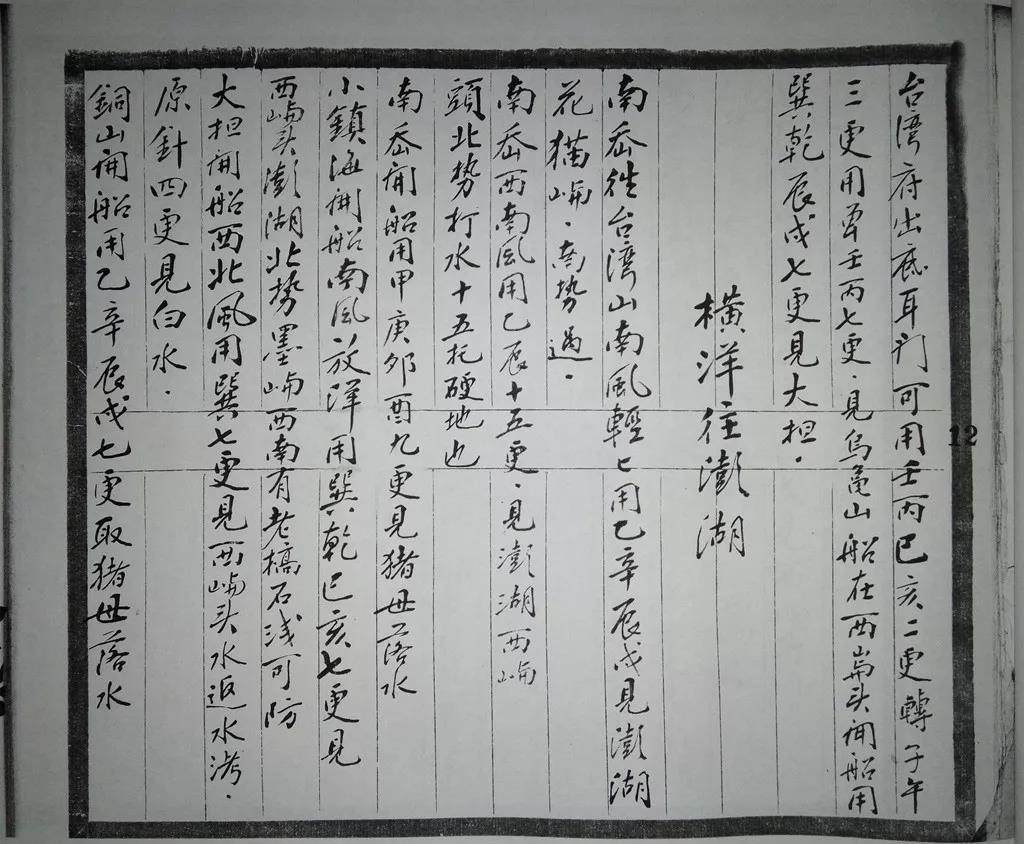 台湾府出鹿耳门可用壬丙巳亥二更轉子午
三更用单壬丙七更．見烏龟山船在西嵜头開船用
巽乾辰戌七更見大担．
橫洋往澎湖
南岙往台湾山南風輕七用乙辛辰戌見澎湖
花猫嶼．南势過．
南岙西南風用乙辰十五更．見澎湖西嶼
頭北势打水十五托硬地也
南岙開船用甲庚夘酉九更見猪母落水
小鎮海開船南風放洋用巽乾巳亥七更見
西嶼头澎湖北势墨嶼西南有老槁石浅可防
大担開船西北風用巽七更見西嶼头水返水涝．
原針四更見白水．
銅山開船用乙辛辰戌七更取猪母落水
12